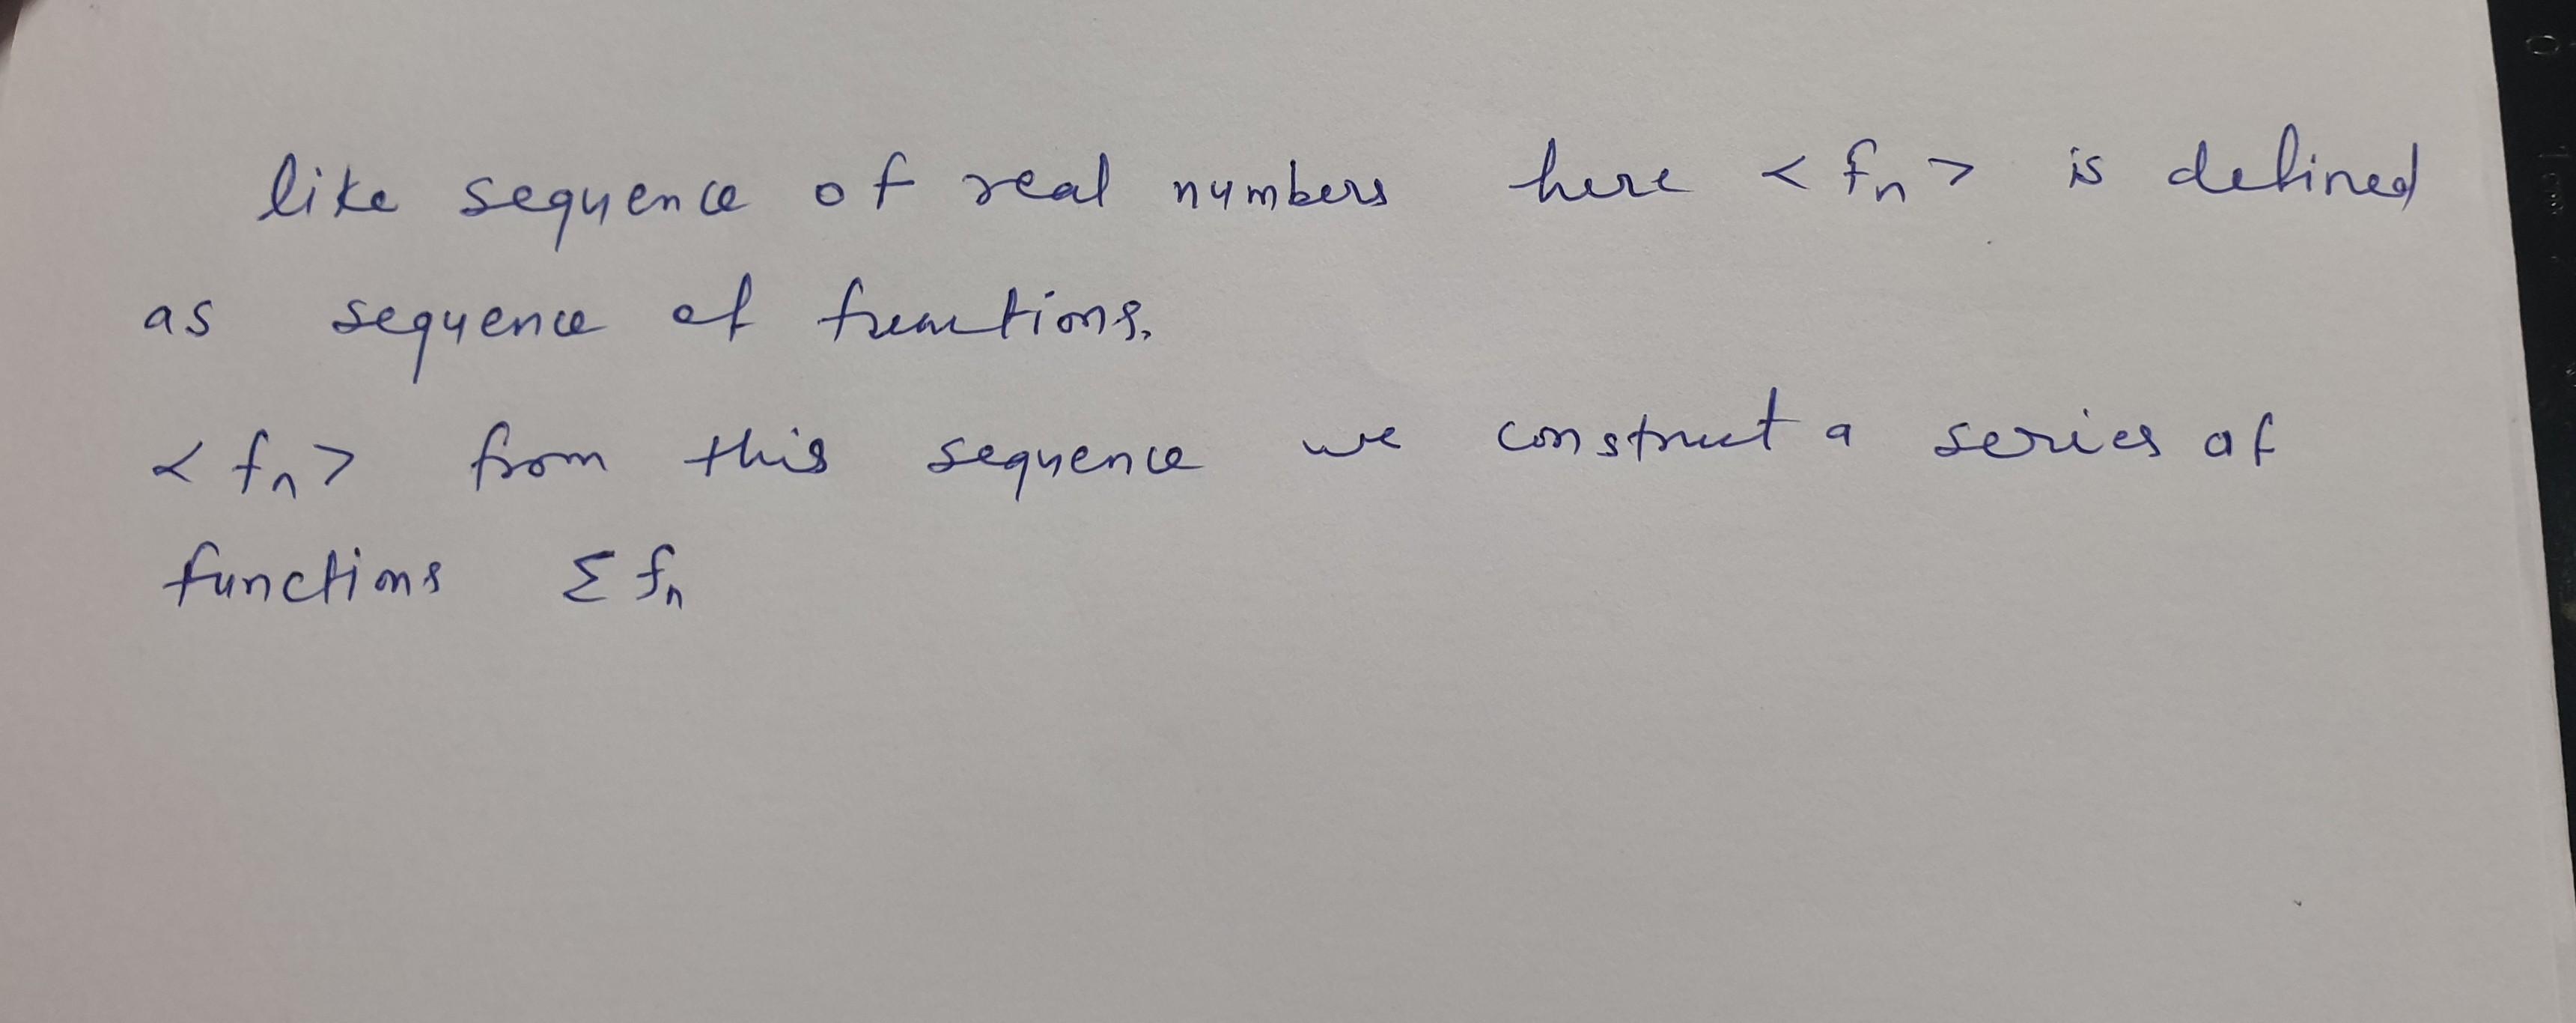 like sequence of real numbers here < fn > is defined
as sequence of functions.
< fn > from this sequence we construct a series of
functions Σ fn